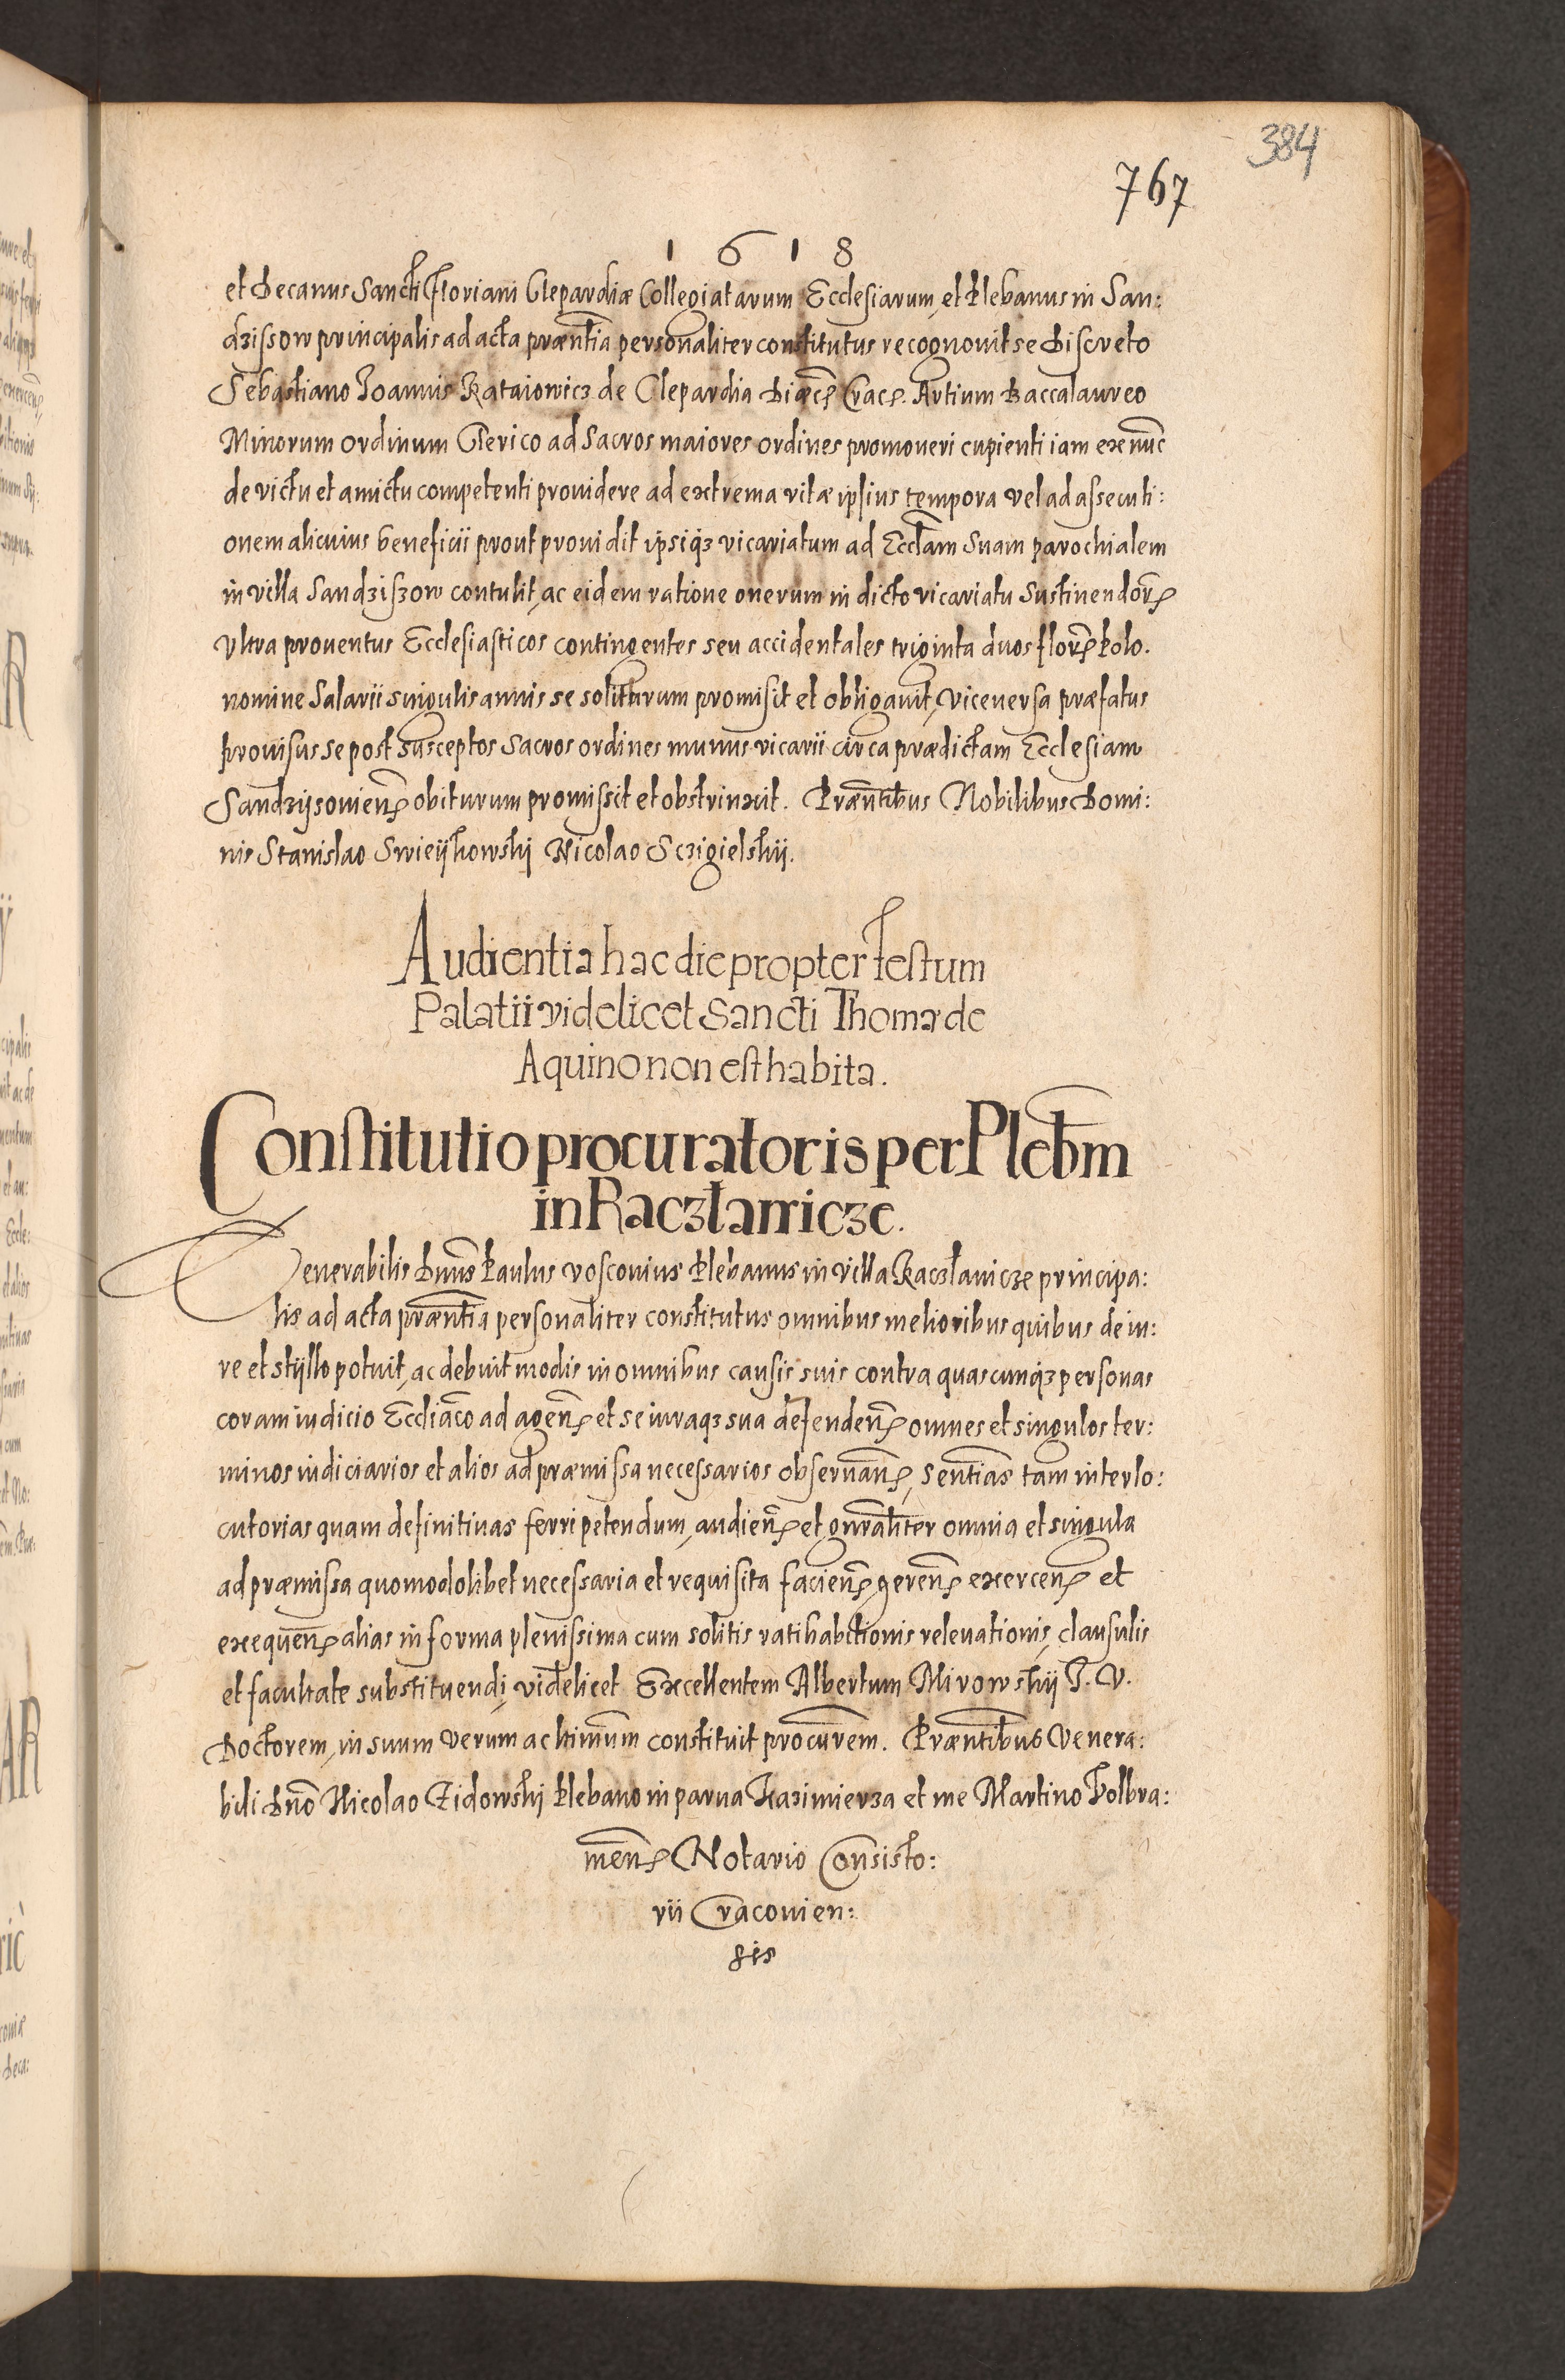 384
767
1618
et Decanus Sancti Floriani Clepardiæ Collegiatarum Ecclesiarum, et Plebanus in San:
dzissow principalis ad acta præntia personaliter constitutus recognovit se Discreto
Sebastiano Joannis Rataiowicz de Clepardia Diæcē Crac. Artium Baccalaureo
Minorum ordinum Clerico ad Sacros maiores ordines promoveri cupienti iam ex nūc
de victu et amictu competenti providere ad extrema vitæ ipsius tempora vel ad assecuti:
onem alicuius beneficii prout providit ipsiqz vicariatum ad Ecclam Suam parochialem
in villa Sandziszow contulit, ac eidem ratione onerum in dicto vicariatu Sustinendor
Ultra proventus Ecclesiasticos contingentes seu accidentales triginta duos flor Polo.
nomine Salarii singulis annis se soliturum promisit et obligavit, Viceversa præfatus
Provisus se post susceptos Sacros ordines munus vicarii circa prædictam Ecclesiam
Sandzijsovien obiturum promissit et obstrinxit. Præntibus Nobilibus Domi:
nis Stanislao Swieijkowskij Nicolao Sczigielskij.
Audientia hac die propter Festum
Palatii videlicet Sancti Thomæ de
Aquino non est habita.
Constitutio procuratoris per Plebm
in Raczlawicze.
Venerabilis Dnus Paulus Vosconius Plebanus in Villa Raczlavicze principa:
lis ad acta præntia personaliter constitutus omnibus melioribus quibus de iu:
re et stijllo potuit, ac debuit modis in omnibus causis suis contra quascunqz personas
coram iudicio Eccliaco ad agen et se iuraqz sua defenden omnes et singulos ter:
minos iudiciarios et alios ad præmissa necessarios observan, Sentias tam interlo:
cutorias quam definitivas ferri petendum, audien et gnraliter omnia et singula
ad præmissa quomodolibet necessaria et requisita facien geren exercen et
exequen alias in forma plenissima cum solitis ratihabitionis relevationis, clausulis
et facultate substituendi, videlicet Excellentem Albertum Mirowskij J. V.
Doctorem, in suum verum ac ltimum constituit procurem. Præntibus Venera:
bili Dno Nicolao Zidowskij Plebano in parva Kazimierza et me Martino Volbra:
men Notario Consisto:
rii Cracovien:
sis